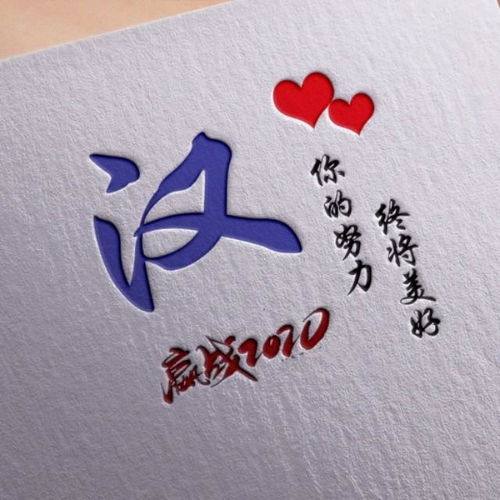 汉
你的努力
终将美好
赢战2020